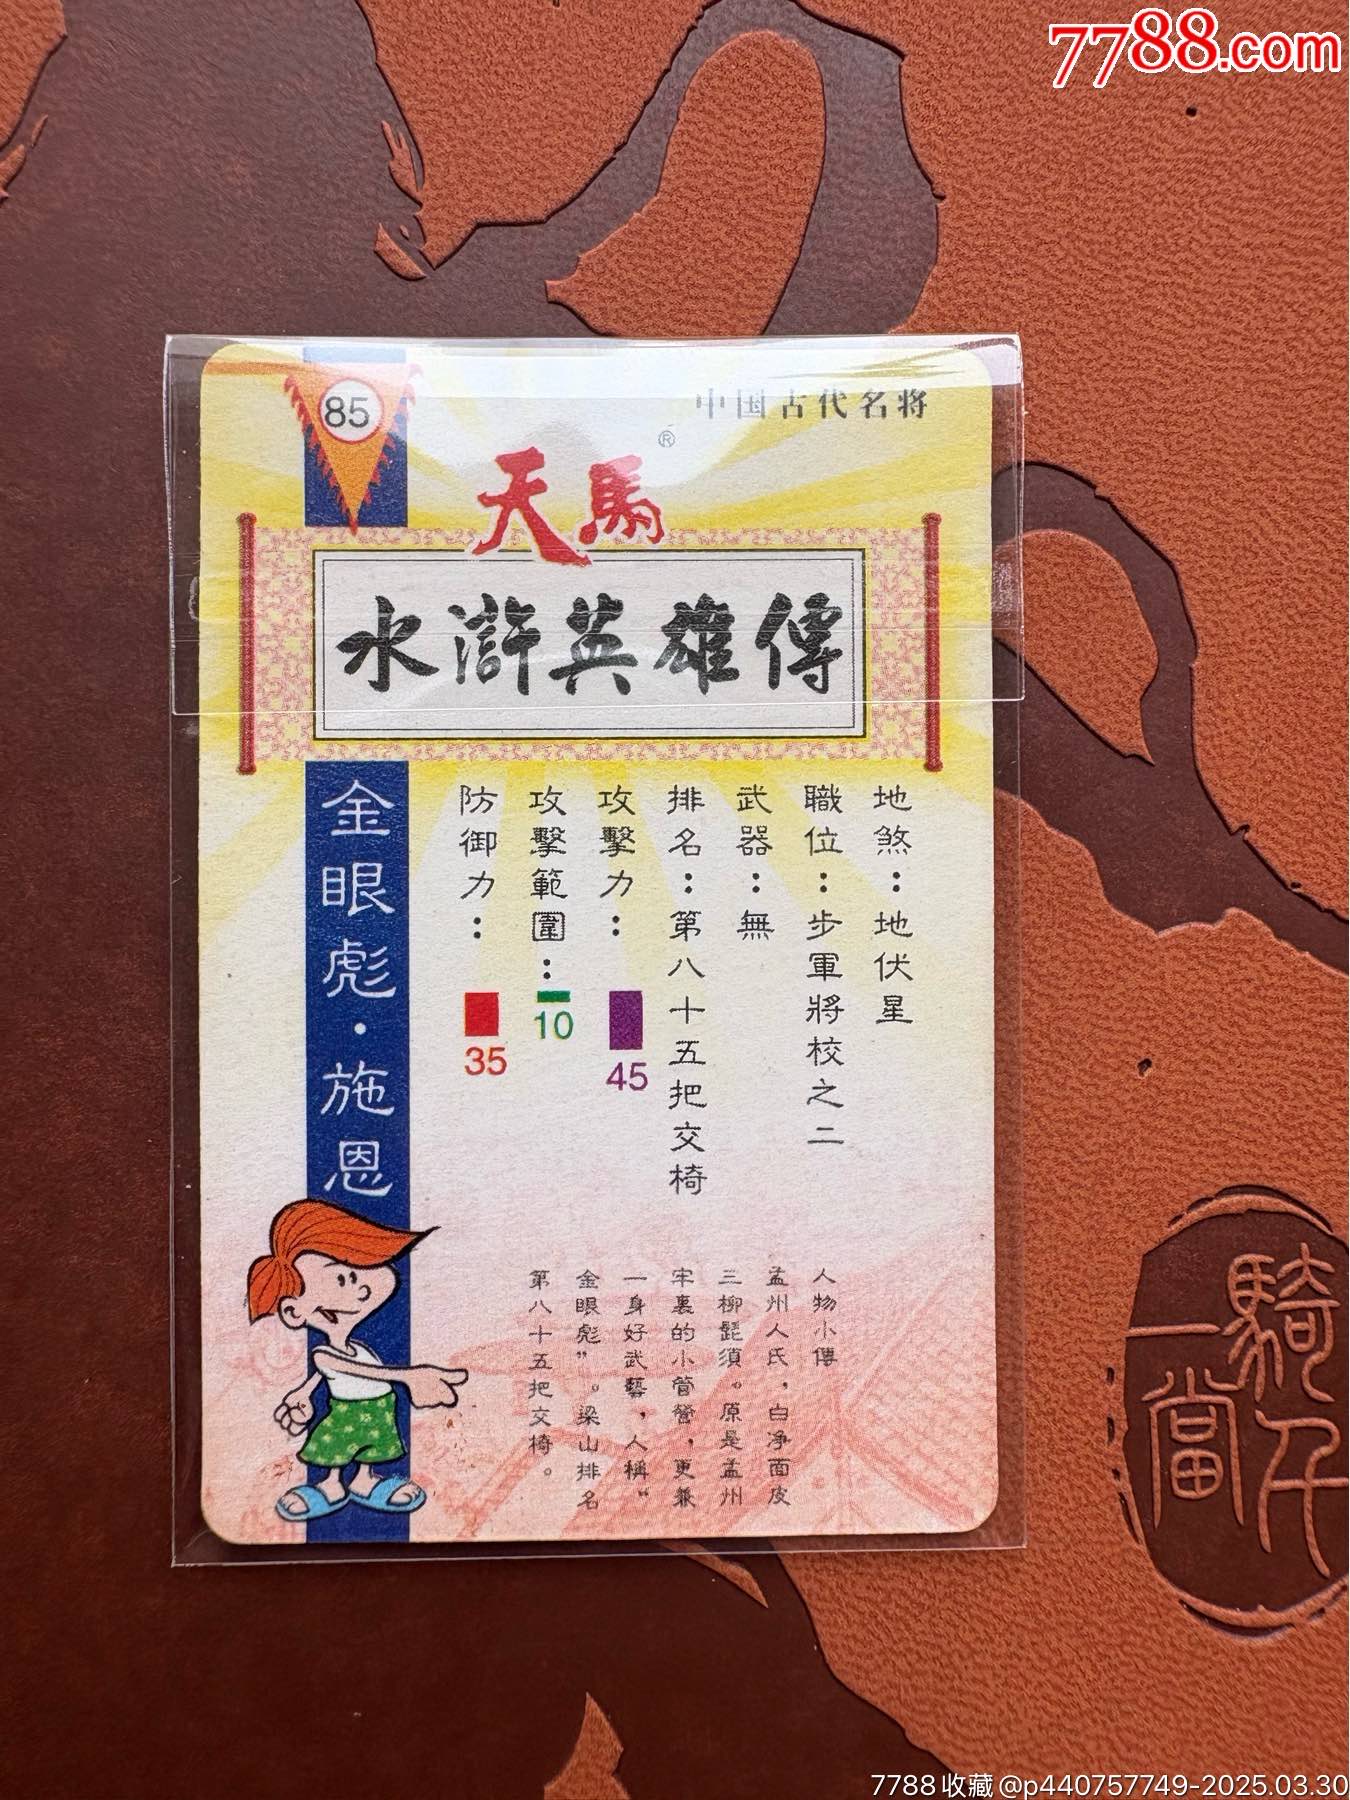 7788.com
85
中国古代名将
®
天馬
水滸英雄傳
地煞：地伏星
職位：步軍將校之二
武器：無
排名：第八十五把交椅
攻擊力：
45
攻擊範圍：
10
防御力：
35
金眼彪·施恩
人物小傳
孟州人氏，白净面皮
三柳髭須。原是孟州
牢裏的小管營，更兼
一身好武藝，人稱“
金眼彪”。梁山排名
第八十五把交椅。
騎
一當千
7788收藏@p440757749-2025.03.30